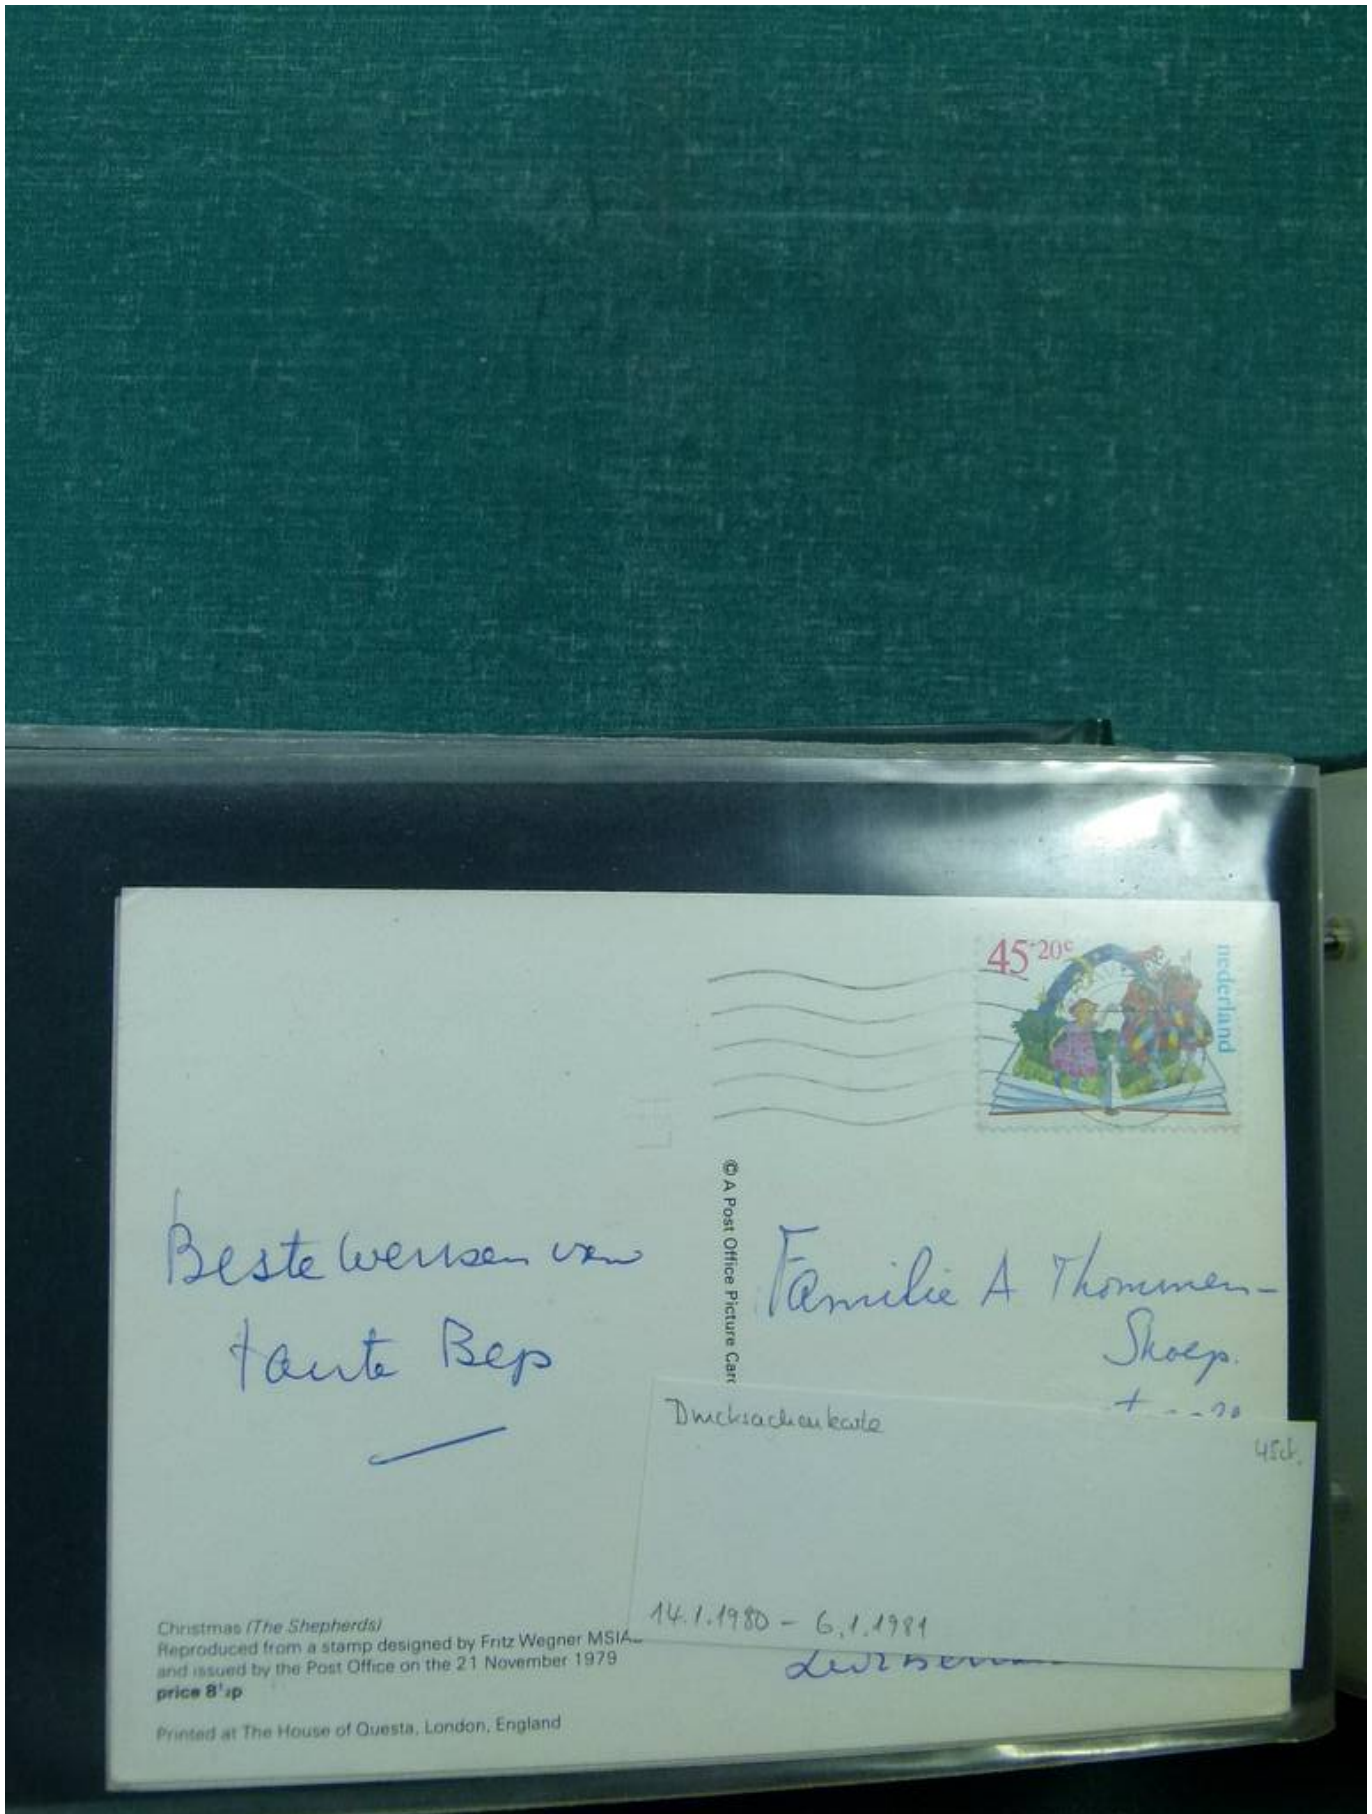 45+20c
nederland
Beste wensen van
tante Bep
© A Post Office Picture Card
Familie A Thommen-
Skoep.
Drucksachenkarte
45ct.
14.1.1980 - 6.1.1981
Christmas (The Shepherds)
Reproduced from a stamp designed by Fritz Wegner MSIA
and issued by the Post Office on the 21 November 1979
price 8½p
Printed at The House of Questa, London, England